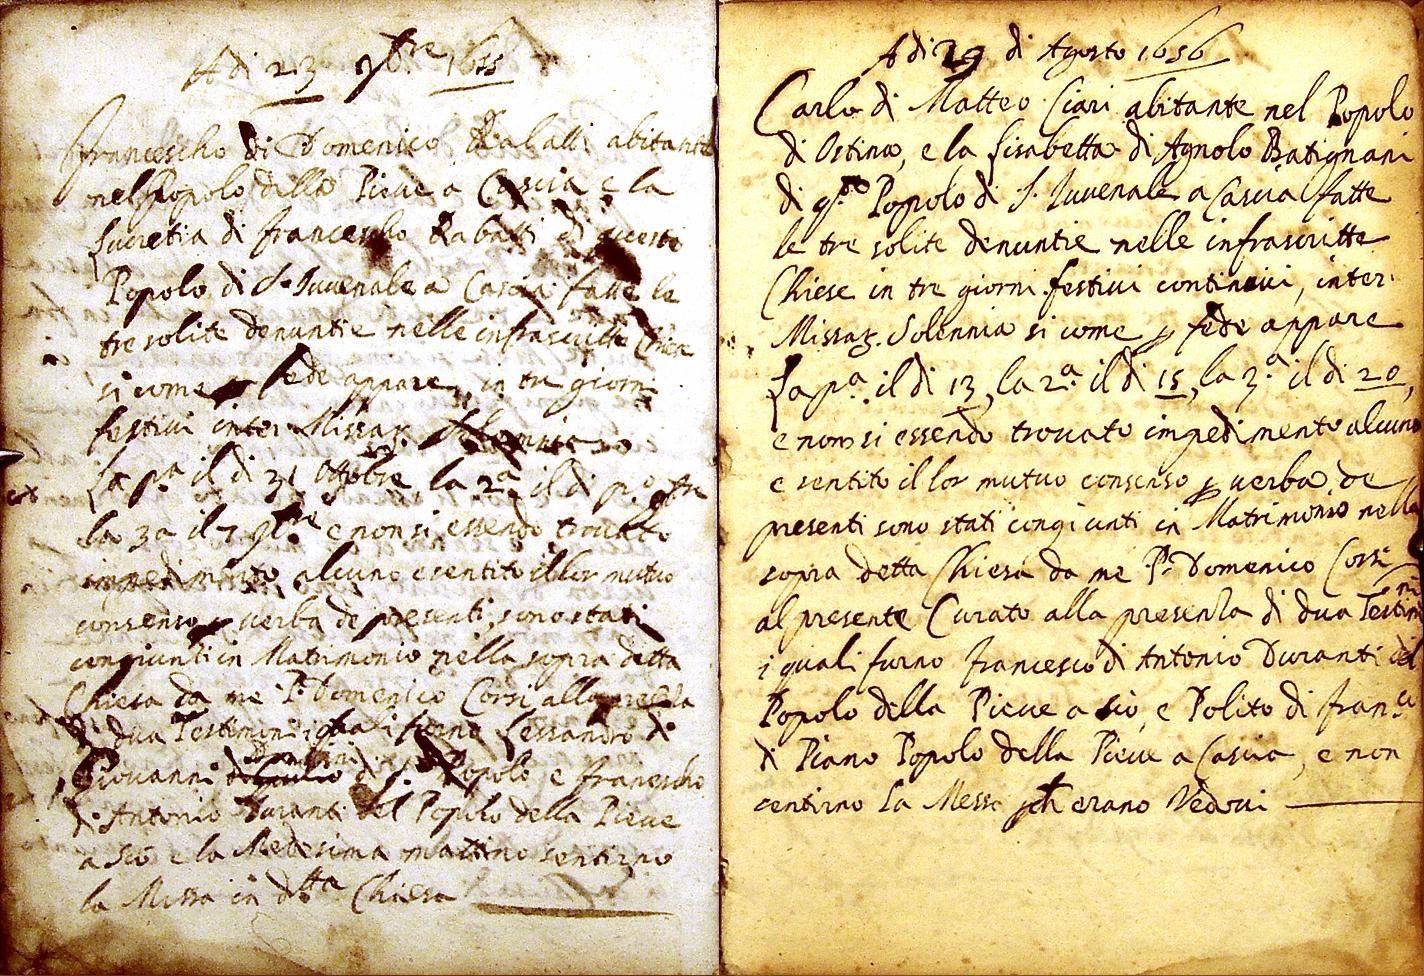 Adi 23 9bre 1655
Francescho di Domenico Rabatti abitante
nel Popolo della Pieve a Cascia e la
Lucretia di Francescho Rabatti di questo
Popolo di S. Iuvenale a Cascia fatte le
tre solite denuntie nelle infrascritte Chiese
si come p fede appare, in tre giorni
festivi inter Missar. Solemnia
La pa il di 31 Ottobre la 2a il di po 9bre
la 3a il 7 9bre e non si essendo trovato
impedimento alcuno e sentito il lor mutuo
consenso p verba de presenti, sono stati
congiunti in Matrimonio nella sopra detta
Chiesa da me P. Domenico Corsi alla
di dua Testimini i quali furno Lessandro di
Giovanni di Popolo e Francescho
di Antonio Duranti del Popolo della Pieve
a Sco e la Medesima mattina sentirno
la Missa in dtta Chiesa
Adi 29 di Agosto 1656
Carlo di Matteo Ciari abitante nel Popolo
di Ostina, e la Lisabetta di Agnolo Batignani
di qsto Popolo di S. Iuvenale a Cascia fatte
le tre solite denuntie nelle infrascritte
Chiese in tre giorni festivi continui, inter
Missar. Solennia si come p fede appare
La pa. il di 13, la 2a. il di 15, la 3.a il di 20,
e non si essendo trovato impedimento alcuno
e sentito il lor mutuo consenso p verba de
presenti sono stati congiunti in Matrimonio nella
sopra detta Chiesa da me P. Domenico Corsi
al presente Curato alla presenza di dua Testimini
i quali furno Francesco di Antonio Duranti del
Popolo della Pieve a Sco, e Polito di Fran.co
di Piano Popolo della Pieve a Cascia, e non
sentirno la Messa pch erano Vedovi